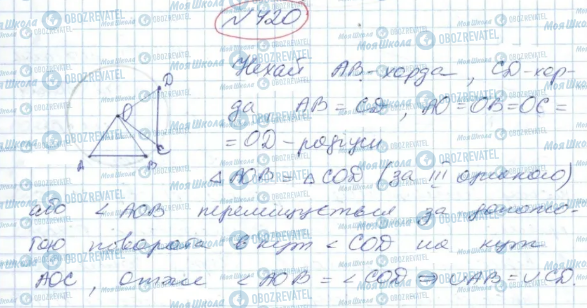 №420
Нехай AB-хорда, CD-хор-
да, AB = CD, AO=OB=OC=
=OD-радіуси
△AOB=△COD (за III ознакою)
або ∠AOB переміщується за допомо-
гою поворота в кут ∠COD на кут
AOC, отже ∠AOB=∠COD ⇒ ∪AB=∪CD.
D
O
C
A
B
Моя Школа
OBOZREVATEL